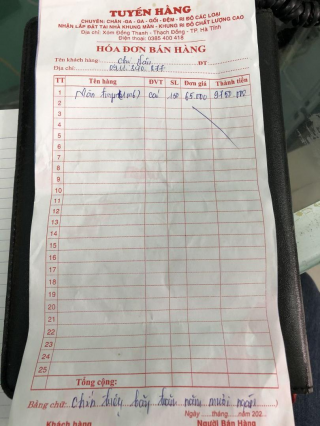 TUYẾN HÀNG
CHUYÊN: CHĂN - GA - GỐI - ĐỆM - RI ĐÔ CÁC LOẠI
NHẬN LẮP ĐẶT TẠI NHÀ KHUNG MÀN - KHUNG RI ĐÔ CHẤT LƯỢNG CAO
Địa chỉ: Xóm Đồng Thanh - Thạch Đồng - TP. Hà Tĩnh
Điện thoại: 0385 400 418
HÓA ĐƠN BÁN HÀNG
Tên khách hàng: ĐT
Địa chỉ:
TT Tên hàng ĐVT SL Đơn giá Thành tiền
1 cái 150 65.000
2
3
4
5
6
7
8
9
10
11
12
13
14
15
16
17
18
19
20
21
22
23
24
25
Tổng cộng:
Bằng chữ: chín triệu bảy trăm năm mươi ngàn
Ngày ...... tháng ...... năm 202...
Khách hàng Người Bán Hàng